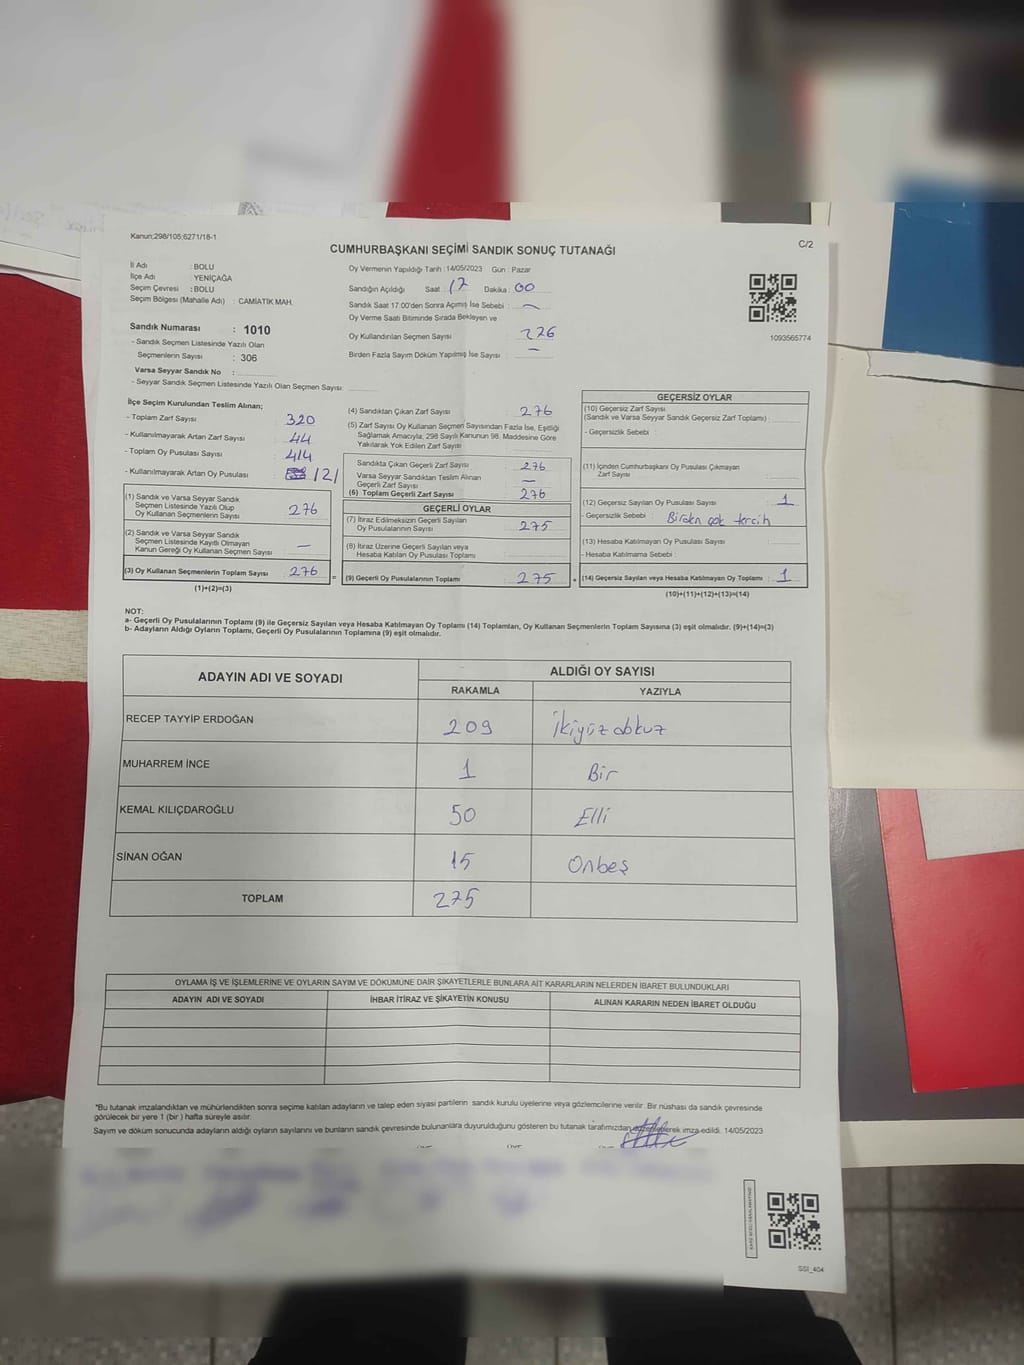 Kanun;298/105;6271/18-1
C/2
CUMHURBAŞKANI SEÇİMİ SANDIK SONUÇ TUTANAĞI
İli Adı : BOLU
İlçe Adı : YENİÇAĞA
Seçim Çevresi : BOLU
Seçim Bölgesi (Mahalle Adı) : CAMİATİK MAH.
Sandık Numarası : 1010
- Sandık Seçmen Listesinde Yazılı Olan
Seçmenlerin Sayısı : 306
Varsa Seyyar Sandık No :
- Seyyar Sandık Seçmen Listesinde Yazılı Olan Seçmen Sayısı:
Oy Vermenin Yapıldığı Tarih : 14/05/2023 Gün : Pazar
Sandığın Açıldığı Saat : 17 Dakika : 00
Sandık Saat 17:00'den Sonra Açılmış İse Sebebi :
Oy Verme Saati Bitiminde Sırada Bekleyen ve
Oy Kullandırılan Seçmen Sayısı 276
Birden Fazla Sayım Döküm Yapılmış İse Sayısı : —
1093565774
İlçe Seçim Kurulundan Teslim Alınan;
- Toplam Zarf Sayısı 320
- Kullanılmayarak Artan Zarf Sayısı 44
- Toplam Oy Pusulası Sayısı 414
- Kullanılmayarak Artan Oy Pusulası
(1) Sandık ve Varsa Seyyar Sandık
Seçmen Listesinde Yazılı Olup
Oy Kullanan Seçmenlerin Sayısı 276
(2) Sandık ve Varsa Seyyar Sandık
Seçmen Listesinde Kayıtlı Olmayan
Kanun Gereği Oy Kullanan Seçmen Sayısı —
(3) Oy Kullanan Seçmenlerin Toplam Sayısı 276
(1)+(2)=(3)
(4) Sandıktan Çıkan Zarf Sayısı 276
(5) Zarf Sayısı Oy Kullanan Seçmen Sayısından Fazla İse, Eşitliği
Sağlamak Amacıyla, 298 Sayılı Kanunun 98. Maddesine Göre
Yakılarak Yok Edilen Zarf Sayısı
Sandıkta Çıkan Geçerli Zarf Sayısı 276
Varsa Seyyar Sandıktan Teslim Alınan
Geçerli Zarf Sayısı —
(6) Toplam Geçerli Zarf Sayısı 276
GEÇERLİ OYLAR
(7) İtiraz Edilmeksizin Geçerli Sayılan
Oy Pusulalarının Sayısı 275
(8) İtiraz Üzerine Geçerli Sayılan veya
Hesaba Katılan Oy Pusulası Toplamı
= (9) Geçerli Oy Pusulalarının Toplamı 275
GEÇERSİZ OYLAR
(10) Geçersiz Zarf Sayısı
(Sandık ve Varsa Seyyar Sandık Geçersiz Zarf Toplamı)
- Geçersizlik Sebebi :
(11) İçinden Cumhurbaşkanı Oy Pusulası Çıkmayan
Zarf Sayısı
(12) Geçersiz Sayılan Oy Pusulası Sayısı 1
- Geçersizlik Sebebi : Birden çok tercih
(13) Hesaba Katılmayan Oy Pusulası Sayısı
- Hesaba Katılmama Sebebi :
+ (14) Geçersiz Sayılan veya Hesaba Katılmayan Oy Toplamı 1
(10)+(11)+(12)+(13)=(14)
NOT:
a- Geçerli Oy Pusulalarının Toplamı (9) ile Geçersiz Sayılan veya Hesaba Katılmayan Oy Toplamı (14) Toplamları, Oy Kullanan Seçmenlerin Toplam Sayısına (3) eşit olmalıdır. (9)+(14)=(3)
b- Adayların Aldığı Oyların Toplamı, Geçerli Oy Pusulalarının Toplamına (9) eşit olmalıdır.
ADAYIN ADI VE SOYADI ALDIĞI OY SAYISI
RAKAMLA YAZIYLA
RECEP TAYYİP ERDOĞAN 209 İkiyüz dokuz
MUHARREM İNCE 1 Bir
KEMAL KILIÇDAROĞLU 50 Elli
SİNAN OĞAN 15 Onbeş
TOPLAM 275
OYLAMA İŞ VE İŞLEMLERİNE VE OYLARIN SAYIM VE DÖKÜMÜNE DAİR ŞİKAYETLERLE BUNLARA AİT KARARLARIN NELERDEN İBARET BULUNDUKLARI
ADAYIN ADI VE SOYADI İHBAR İTİRAZ VE ŞİKAYETİN KONUSU ALINAN KARARIN NEDEN İBARET OLDUĞU
*Bu tutanak imzalandıktan ve mühürlendikten sonra seçime katılan adayların ve talep eden siyasi partilerin sandık kurulu üyelerine veya gözlemcilerine verilir. Bir nüshası da sandık çevresinde
görülecek bir yere 1 (bir ) hafta süreyle asılır.
Sayım ve döküm sonucunda adayların aldığı oyların sayılarını ve bunların sandık çevresinde bulunanlara duyurulduğunu gösteren bu tutanak tarafımızdan düzenlenerek imza edildi. 14/05/2023
SSI_404